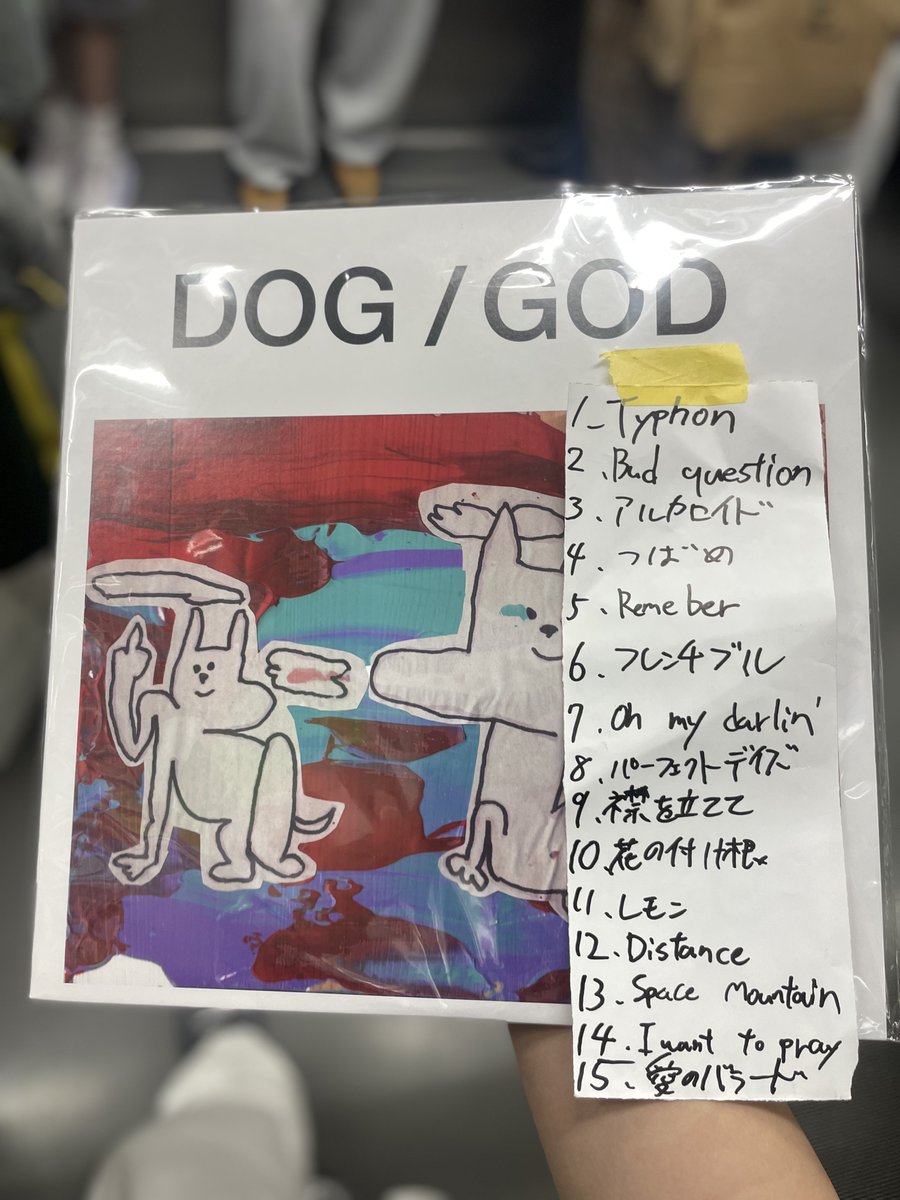 DOG / GOD
1_Typhon
2.Bud question
3.アルカロイド
4.つばめ
5.Remeber
6.フレンチブル
7.Oh my darlin'
8.パーフェクトデイズ
9.襟を立てて
10.花の付け根
11.レモン
12.Distance
13.Space Mountain
14.I want to pray
15.愛のバラード